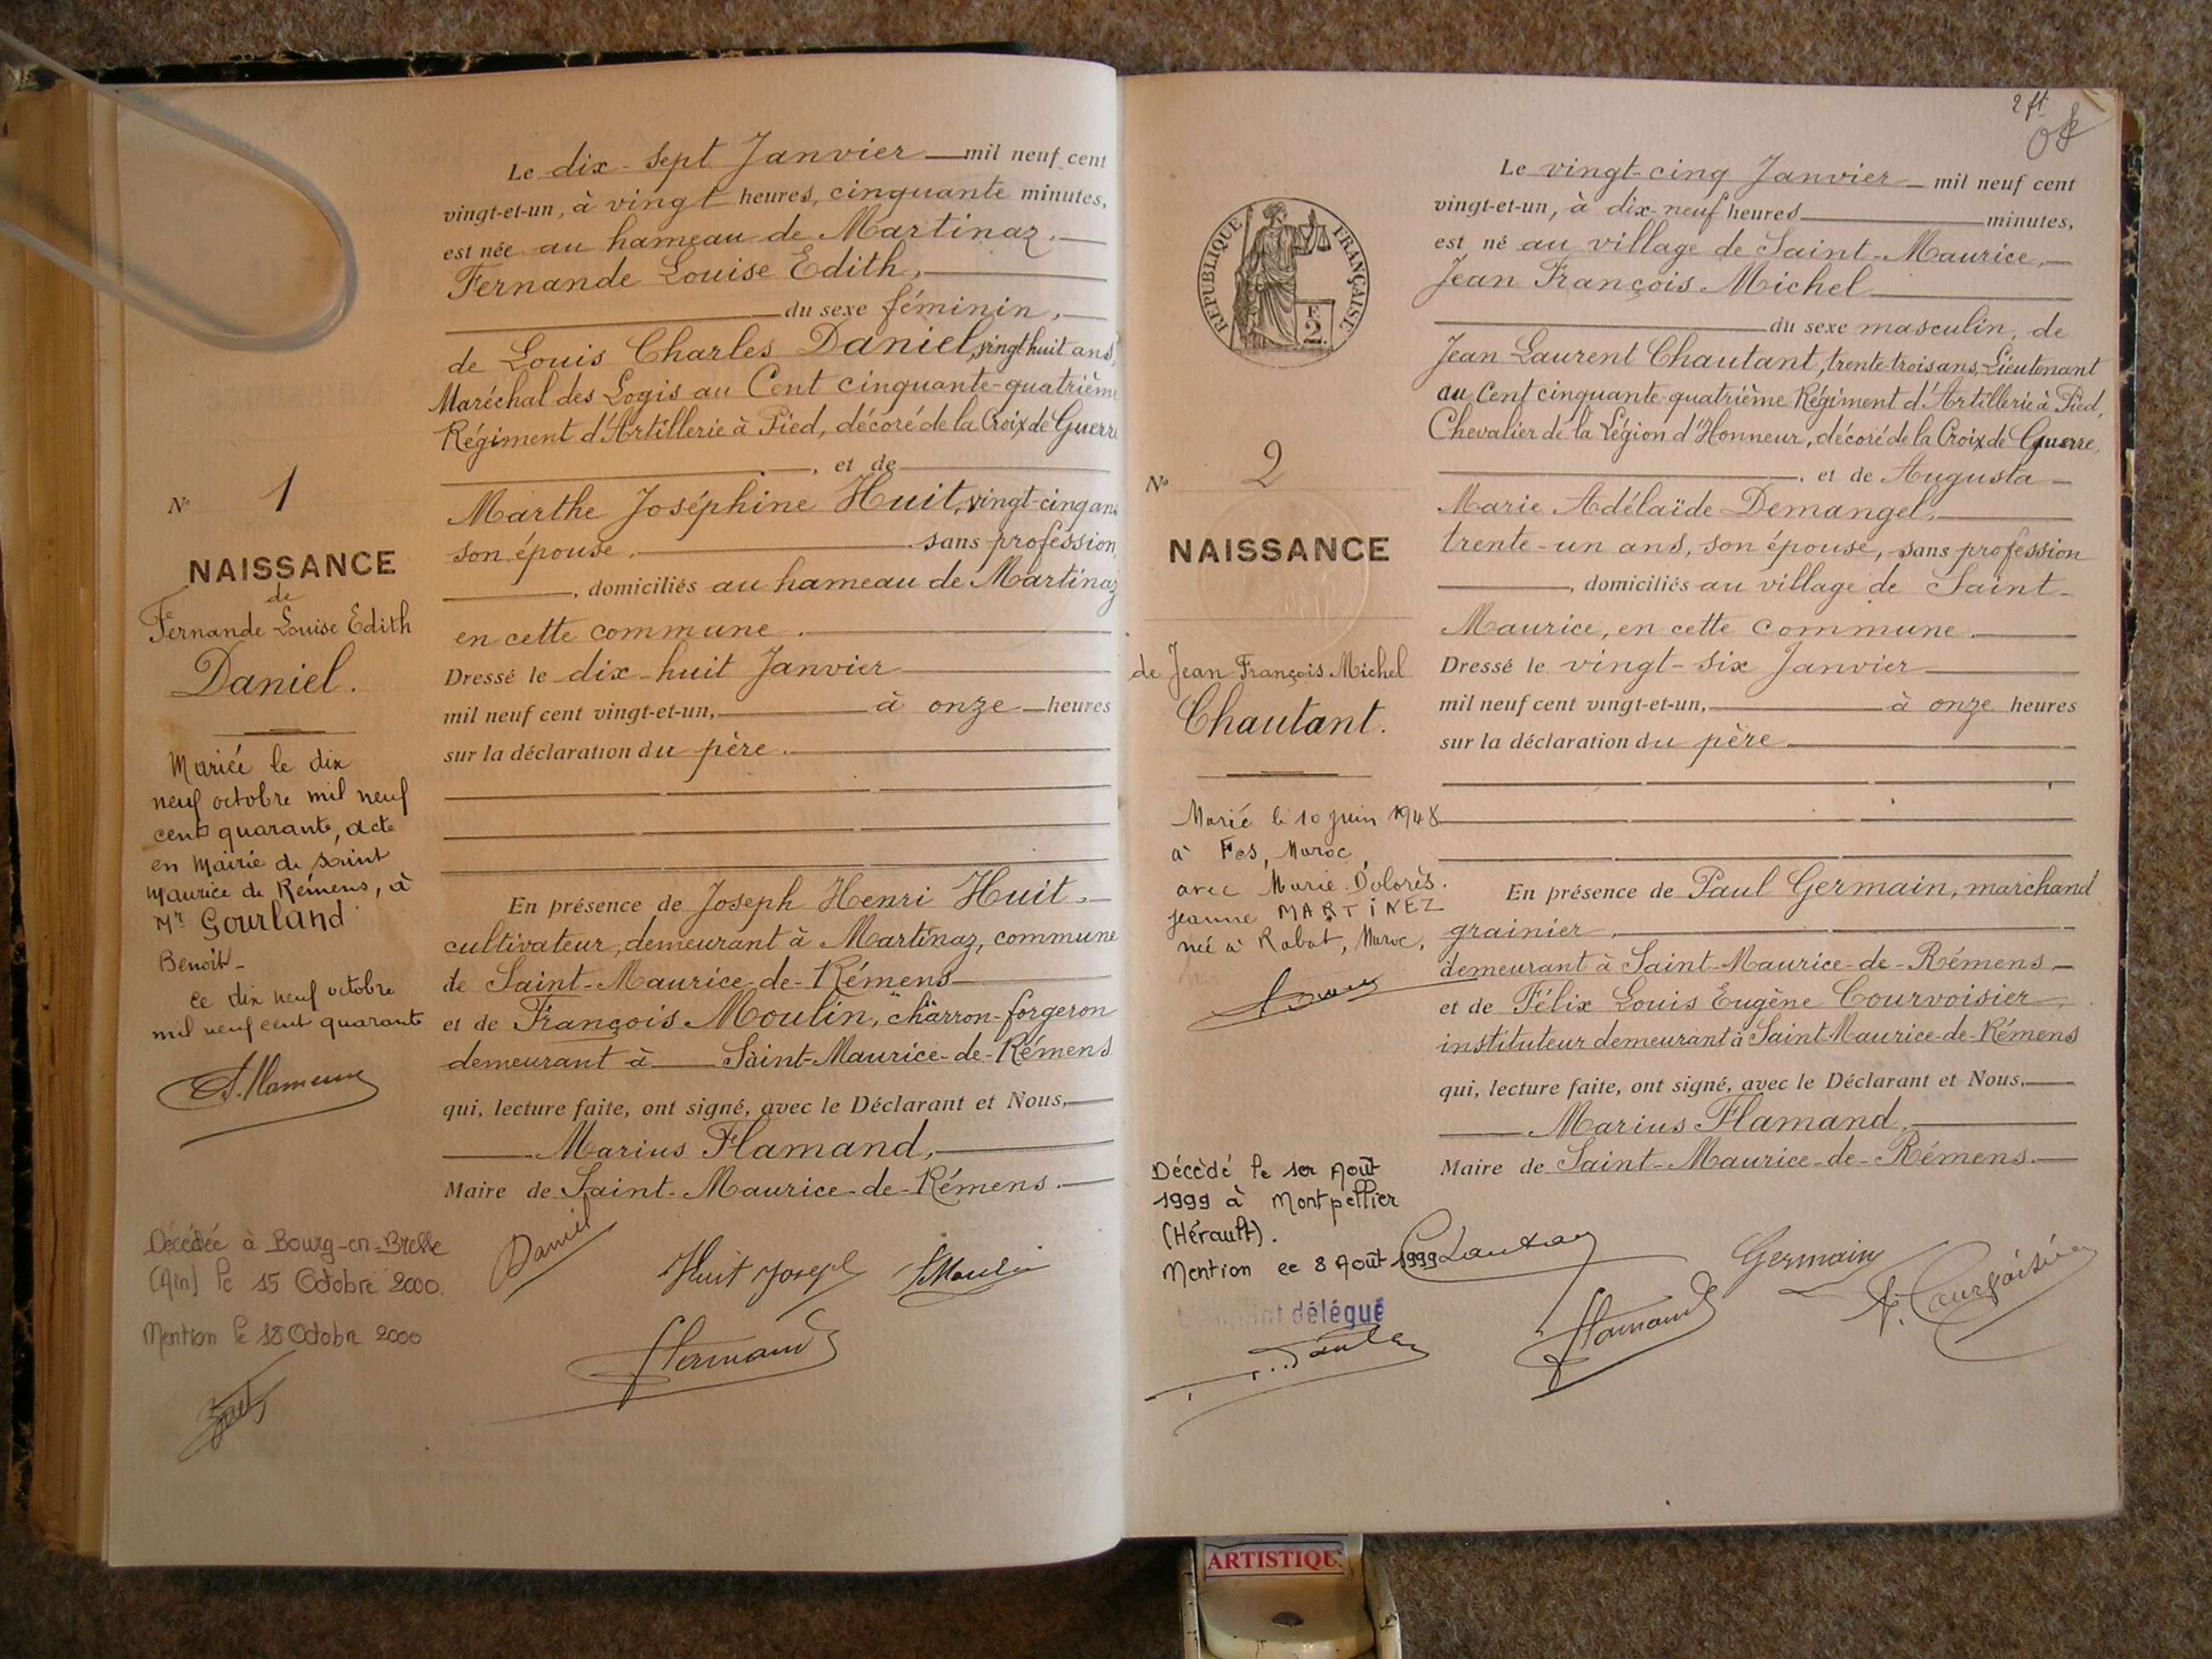 Le dix-sept Janvier mil neuf cent
vingt-et-un, à vingt heures, cinquante minutes,
est née au hameau de Martinaz.
Fernande Louise Edith,
du sexe féminin,
de Louis Charles Daniel, vingt huit ans,
Maréchal des Logis au Cent cinquante-quatrième
Régiment d'Artillerie à Pied, décoré de la Croix de Guerre
, et de
Marthe Joséphine Huit, vingt-cinq ans
son épouse. sans profession,
, domiciliés au hameau de Martinaz
en cette commune.
Dressé le dix-huit Janvier
mil neuf cent vingt-et-un, à onze heures
sur la déclaration du père.
En présence de Joseph Henri Huit,
cultivateur, demeurant à Martinaz, commune
de Saint-Maurice-de-Rémens
et de François Moulin, charron-forgeron
demeurant à Saint-Maurice-de-Rémens
qui, lecture faite, ont signé, avec le Déclarant et Nous,
Marius Flamand,
Maire de Saint-Maurice-de-Rémens.
Daniel
Huit Joseph
F Moulin
Flamand
N° 1
NAISSANCE
de
Fernande Louise Edith
Daniel.
Mariée le dix
neuf octobre mil neuf
cent quarante, acte
en Mairie de Saint
Maurice de Rémens, à
Mr Gourland
Benoit-
ce dix neuf octobre
mil neuf cent quarante
Décédée à Bourg-en-Bresse
(Ain) le 15 Octobre 2000.
Mention le 18 Octobre 2000
2 ft
Le vingt-cinq Janvier mil neuf cent
vingt-et-un, à dix-neuf heures minutes,
est né au village de Saint-Maurice,
Jean François Michel
du sexe masculin, de
Jean Laurent Chautant, trente-trois ans, Lieutenant
au Cent cinquante-quatrième Régiment d'Artillerie à Pied,
Chevalier de la Légion d'Honneur, décoré de la Croix de Guerre,
, et de Augusta
Marie Adélaïde Demangel,
trente-un ans, son épouse, sans profession
, domiciliés au village de Saint-
Maurice, en cette commune.
Dressé le vingt-six Janvier
mil neuf cent vingt-et-un, à onze heures
sur la déclaration du père.
En présence de Paul Germain, marchand
grainier,
demeurant à Saint-Maurice-de-Rémens
et de Félix Louis Eugène Courvoisier,
instituteur demeurant à Saint-Maurice-de-Rémens
qui, lecture faite, ont signé, avec le Déclarant et Nous,
Marius Flamand,
Maire de Saint-Maurice-de-Rémens.
Chautant
Germain
Flamand
F. Courvoisier
RÉPUBLIQUE FRANÇAISE
F.
2.
N° 2
NAISSANCE
de Jean François Michel
Chautant.
Marié le 10 juin 1948
à Fes, Maroc,
avec Marie Dolorès.
Jeanne MARTINEZ
née à Rabat, Maroc.
Décédé le 1er Août
1999 à Montpellier
(Hérault).
Mention ce 8 Août 1999
délégué
ARTISTIQU